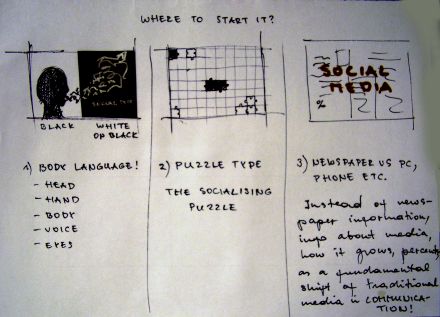 WHERE TO START IT?
BLACK
WHITE
ON BLACK
SOCIAL
MEDIA
%
1) BODY LANGUAGE!
- HEAD
- HAND
- BODY
- VOICE
- EYES
2) PUZZLE TYPE
THE SOCIALISING
PUZZLE
3) NEWSPAPER VS PC,
PHONE ETC.
Instead of news-
paper information,
info about media,
how it grows, percents
as a fundamental
shift of traditional
media in COMMUNICA-
TION!